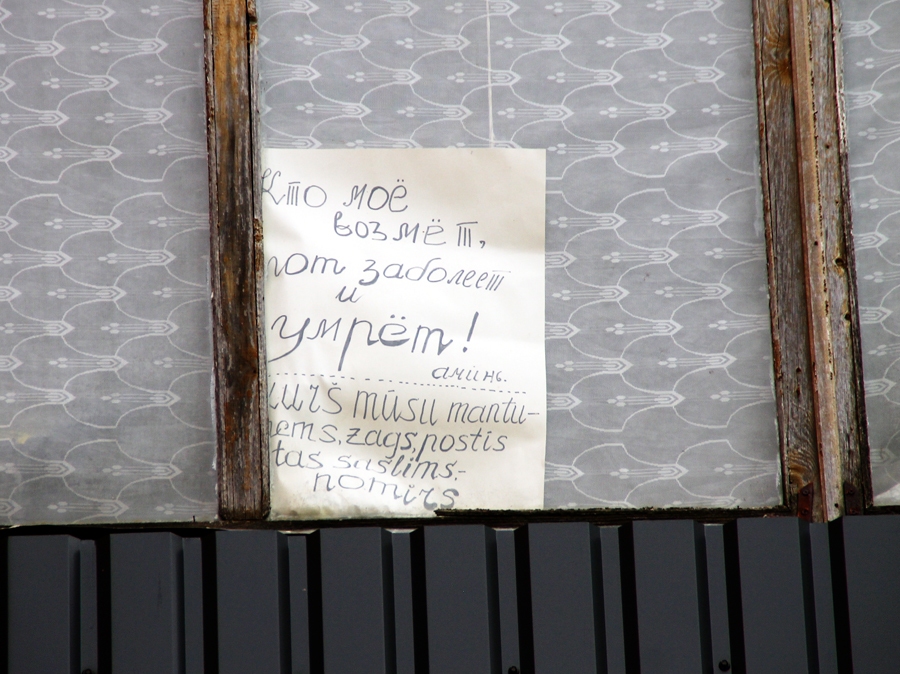 Кто моё
возмёт,
тот заболеет
и
умрёт!
аминь.
kurš mūsu mantu-
ņems, zags, postis
tas saslims,-
nomirs